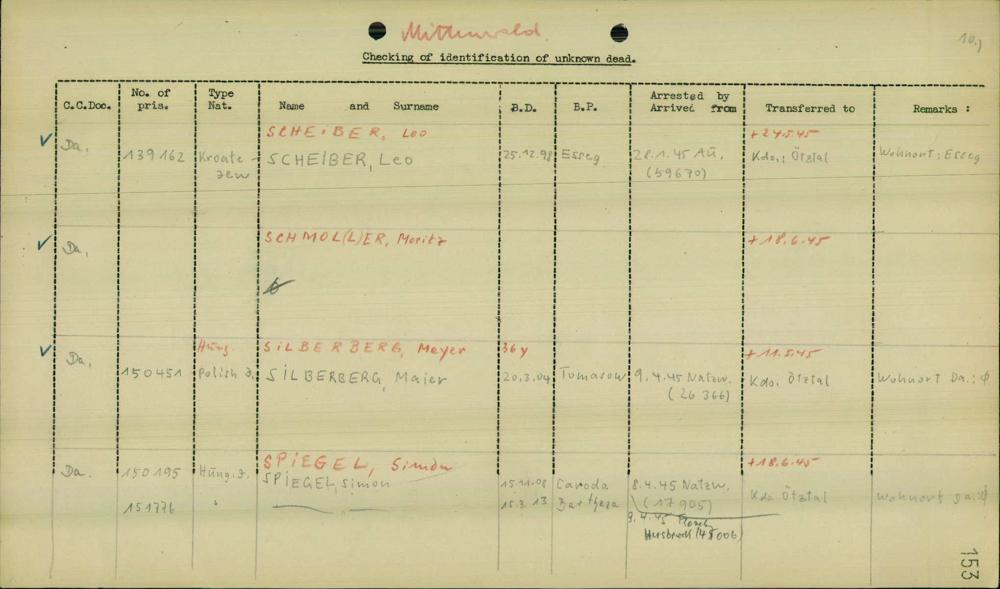 Mittenwald.
10.)
Checking of identification of unknown dead.
C.C.Doc. No. of pris. Type Nat. Name and Surname B.D. B.P. Arrested by Arrived from Transferred to Remarks :
SCHEIBER, Leo +24.5.45
Da. 139162 Kroate - SCHEIBER, Leo 25.12.98 Esseg 28.1.45 Au. Kdo.: Ötztal Wohnort: Esseg
(59670)
Da. SCHMOL(L)ER, Moritz +18.6.45
Hung. SILBERBERG, Meyer 36 y +11.5.45
Da. 150451 Polish J. SILBERBERG, Maier 20.3.04 Tomasow 9.4.45 Natzw. Kdo. Ötztal Wohnort Da.: Ø
(26 366)
SPIEGEL, Simon +18.6.45
Da. 150195 Hung. J. SPIEGEL, Simon 15.11.08 Caroda 8.4.45 Natzw. Kdo Ötztal Wohnort
(17905)
151776 " 15.3.13 9.4.45
153